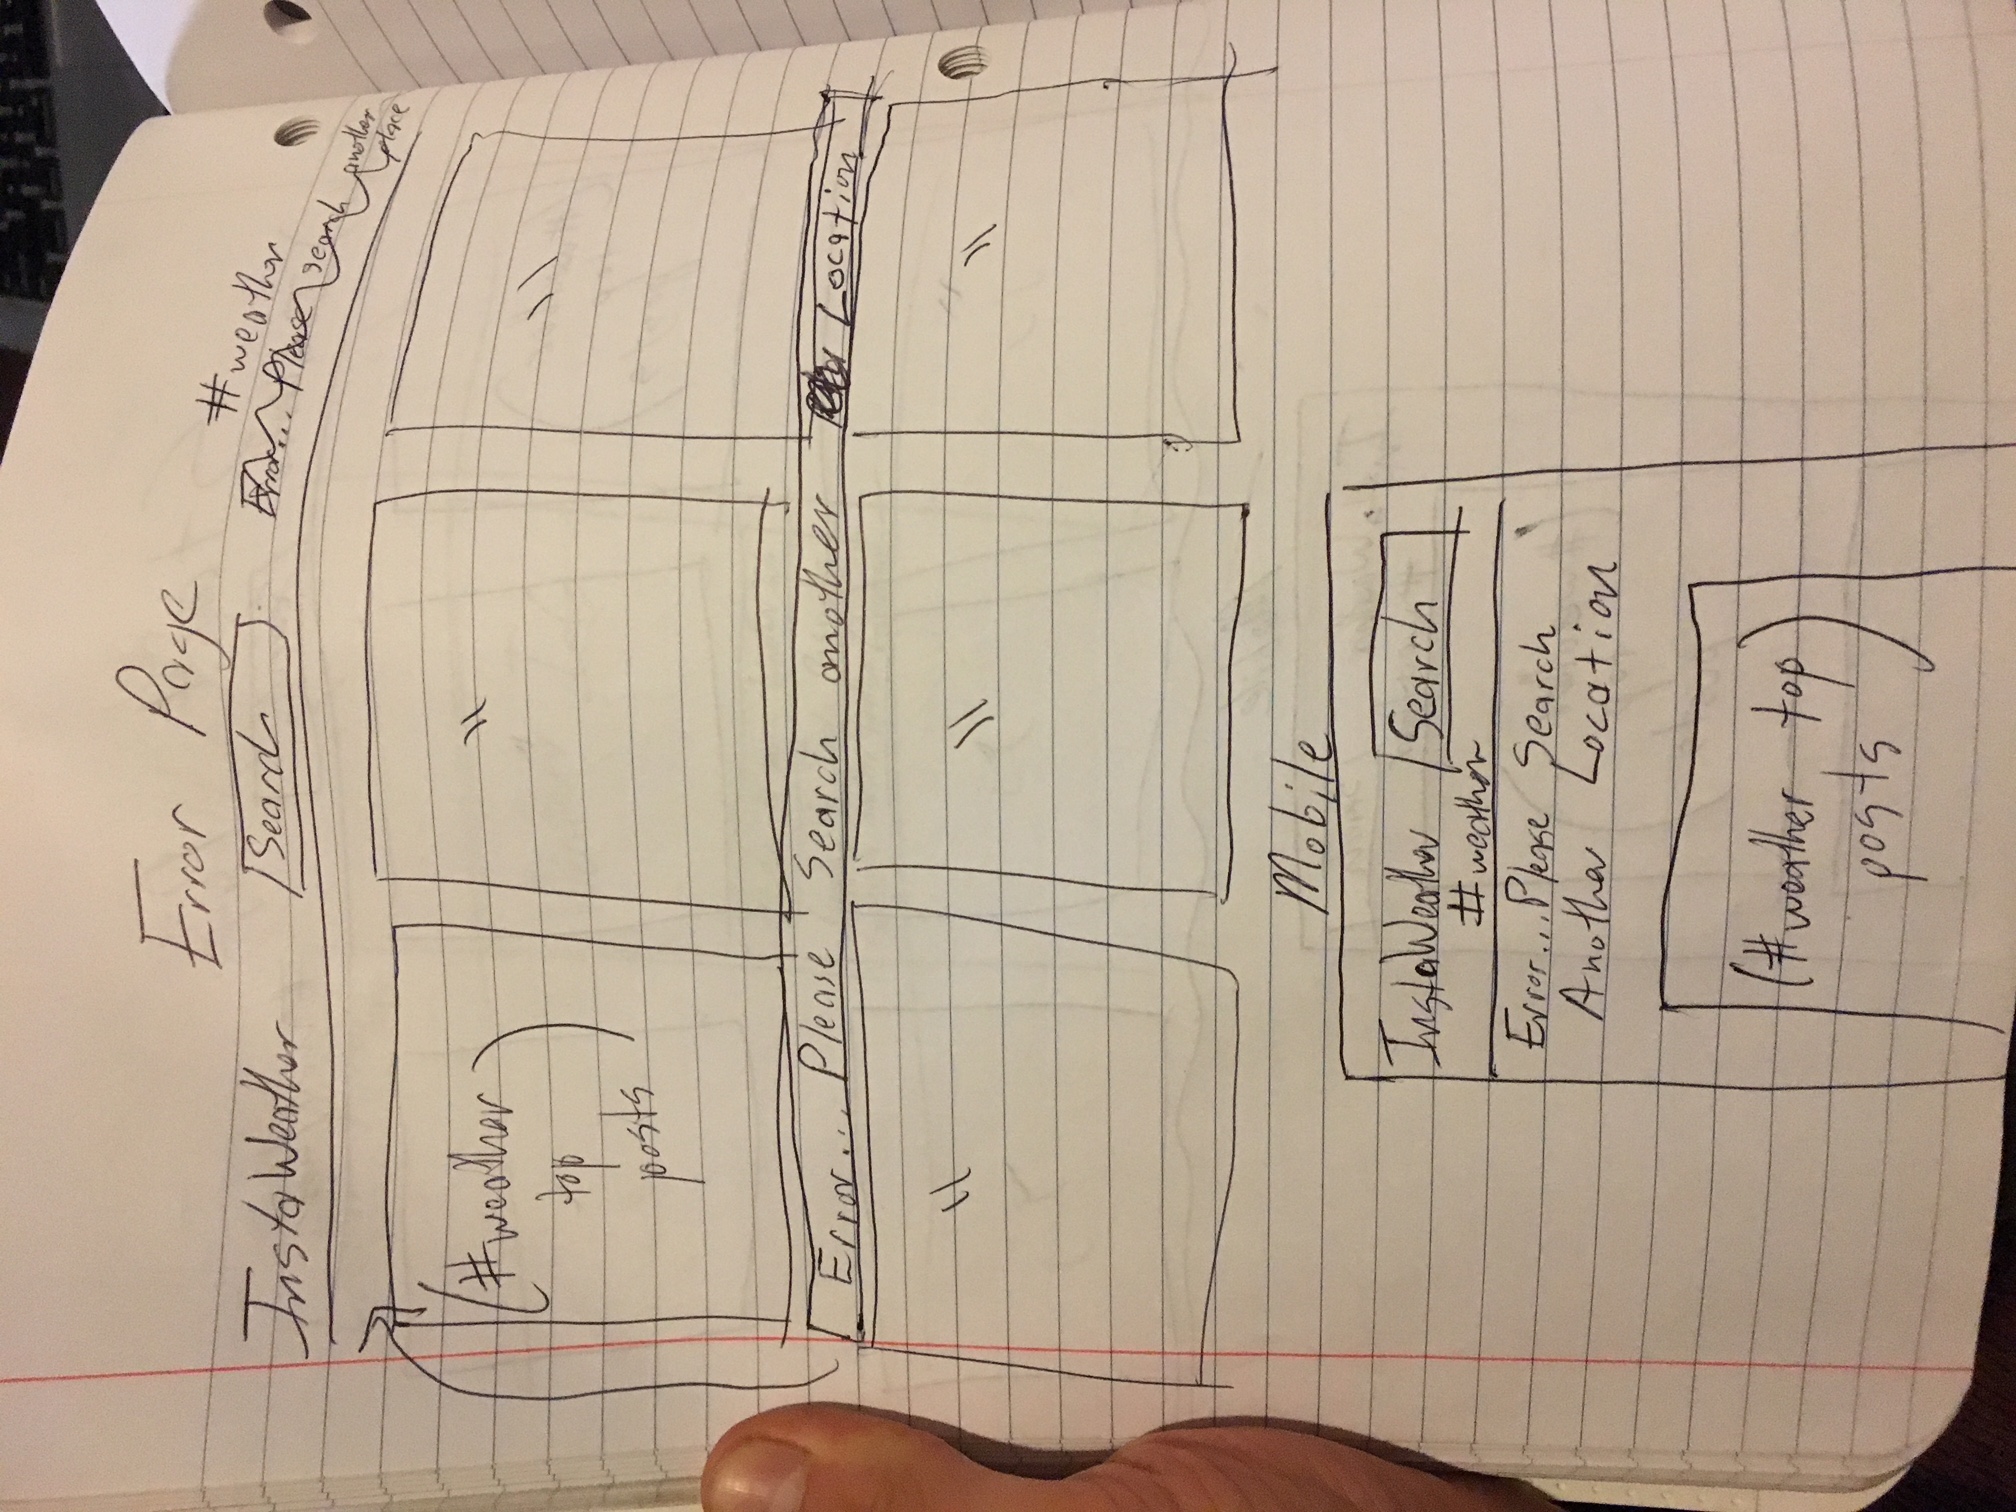 Error Page
InstaWeather Search #weather
Error... Please search another place
(#weather
top
posts)
" "
Error... Please Search another Location
" " "
Mobile
InstaWeather Search
#weather
Error...Please Search
Another Location
(#weather top
posts)